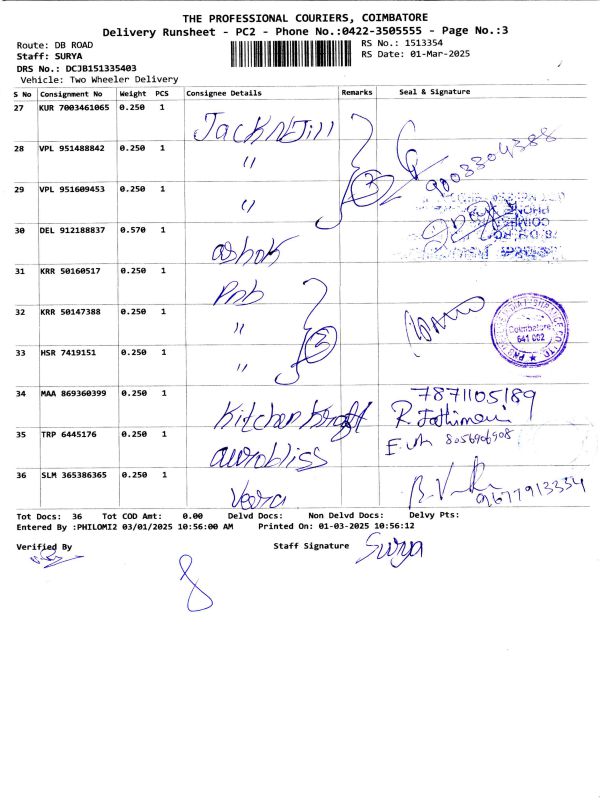 THE PROFESSIONAL COURIERS, COIMBATORE
Delivery Runsheet - PC2 - Phone No.:0422-3505555 - Page No.:3
Route: DB ROAD
RS No.: 1513354
Staff: SURYA
RS Date: 01-Mar-2025
DRS No.: DCJB151335403
Vehicle: Two Wheeler Delivery
S No Consignment No Weight PCS Consignee Details Remarks Seal & Signature
27 KUR 7003461065 0.250 1 Jack N Jill
28 VPL 951488842 0.250 1 "
9003304388
29 VPL 951609453 0.250 1 " 3
30 DEL 912188837 0.570 1 ashok
31 KRR 50160517 0.250 1 Pnb
32 KRR 50147388 0.250 1 "
Coimbatore
641 002
33 HSR 7419151 0.250 1 " 3
34 MAA 869360399 0.250 1 Kitchen Kraft 7871105189
35 TRP 6445176 0.250 1 aurobliss 8056906908
36 SLM 365386365 0.250 1 Veera 9677913334
Tot Docs: 36 Tot COD Amt: 0.00 Delvd Docs: Non Delvd Docs: Delvy Pts:
Entered By :PHILOMI2 03/01/2025 10:56:00 AM Printed On: 01-03-2025 10:56:12
Verified By
Staff Signature Surya